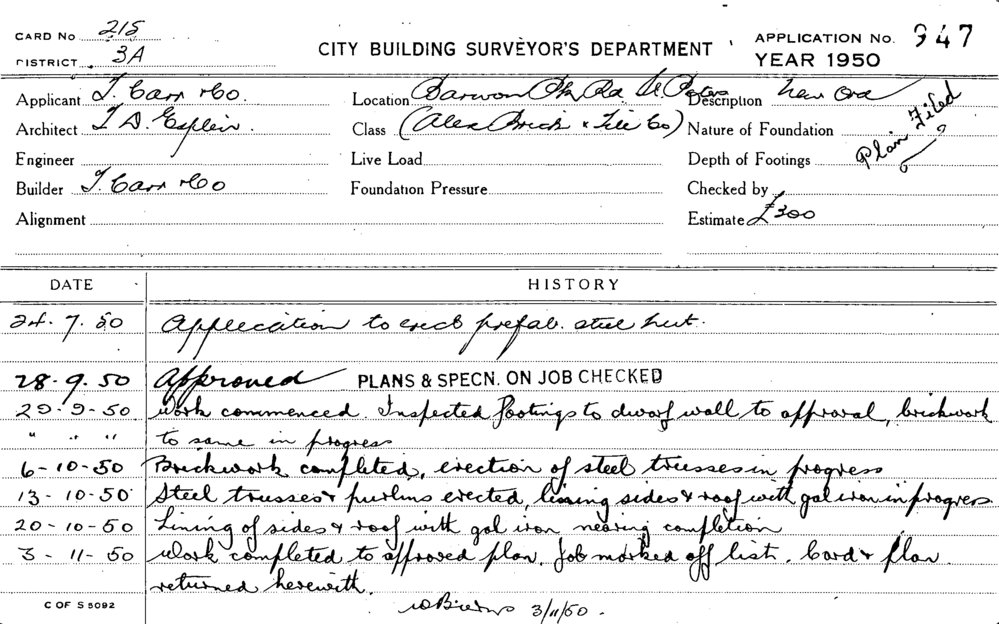 CARD No 215
DISTRICT 3A
CITY BUILDING SURVEYOR'S DEPARTMENT
APPLICATION No. 947
YEAR 1950
Applicant T. Carr & Co.
Location Barwon Pk Rd St. Peters
Description New Ord
Architect T. D. Esplin.
Class (Alex Brick & Tile Co)
Nature of Foundation
Plan Filed
Engineer
Live Load
Depth of Footings
Builder T. Carr & Co
Foundation Pressure
Checked by
Alignment
Estimate £300
DATE HISTORY
24.7.50 Application to erect prefab. steel hut.
28.9.50 Approved PLANS & SPECN. ON JOB CHECKED
29-9-50 Work commenced. Inspected footings to dwarf wall to approval, brickwork
" " " to same in progress
6-10-50 Brickwork completed, erection of steel trusses in progress
13-10-50 Steel trusses & purlins erected, lining sides & roof with gal iron in progress
20-10-50 Lining of sides & roof with gal iron nearing completion
3-11-50 Work completed to approved plan. Job marked off list. Card & plan
returned herewith.
C OF S 5092
3/11/50.